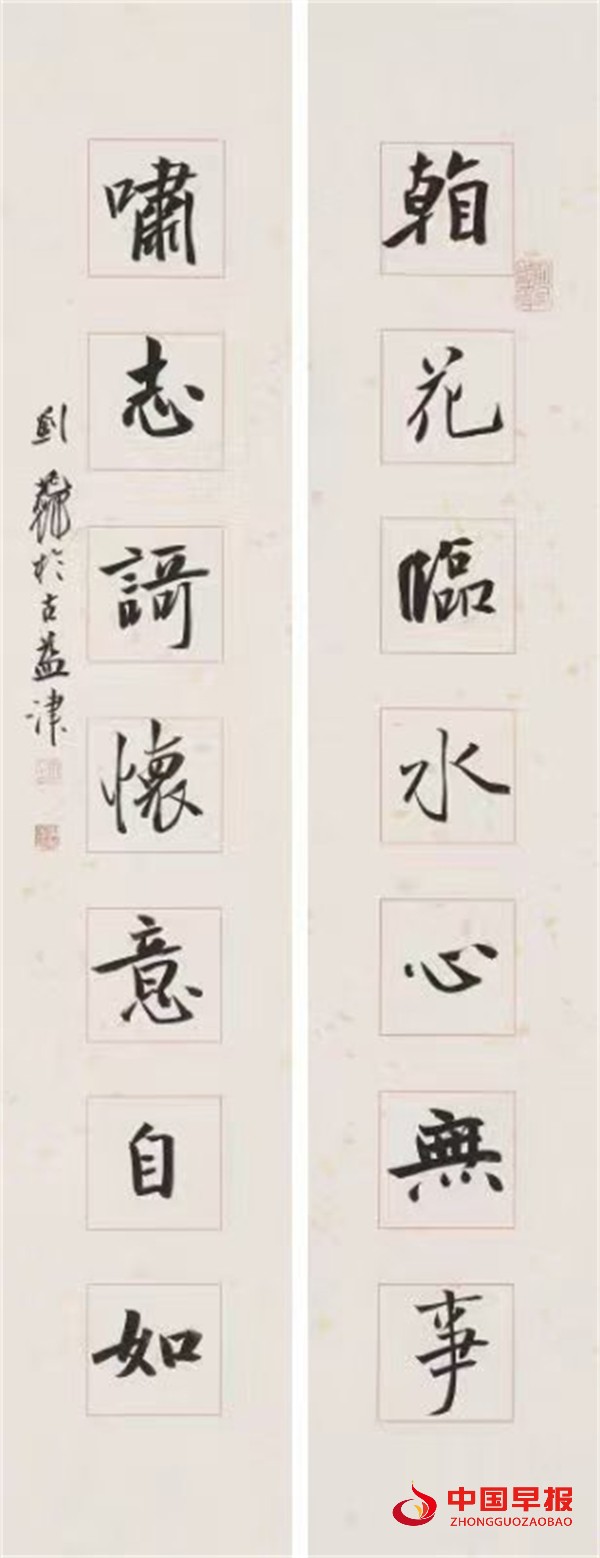 看花臨水心無事
嘯志謌懷意自如
劉 於古益津
中国早报
ZHONGGUOZAOBAO